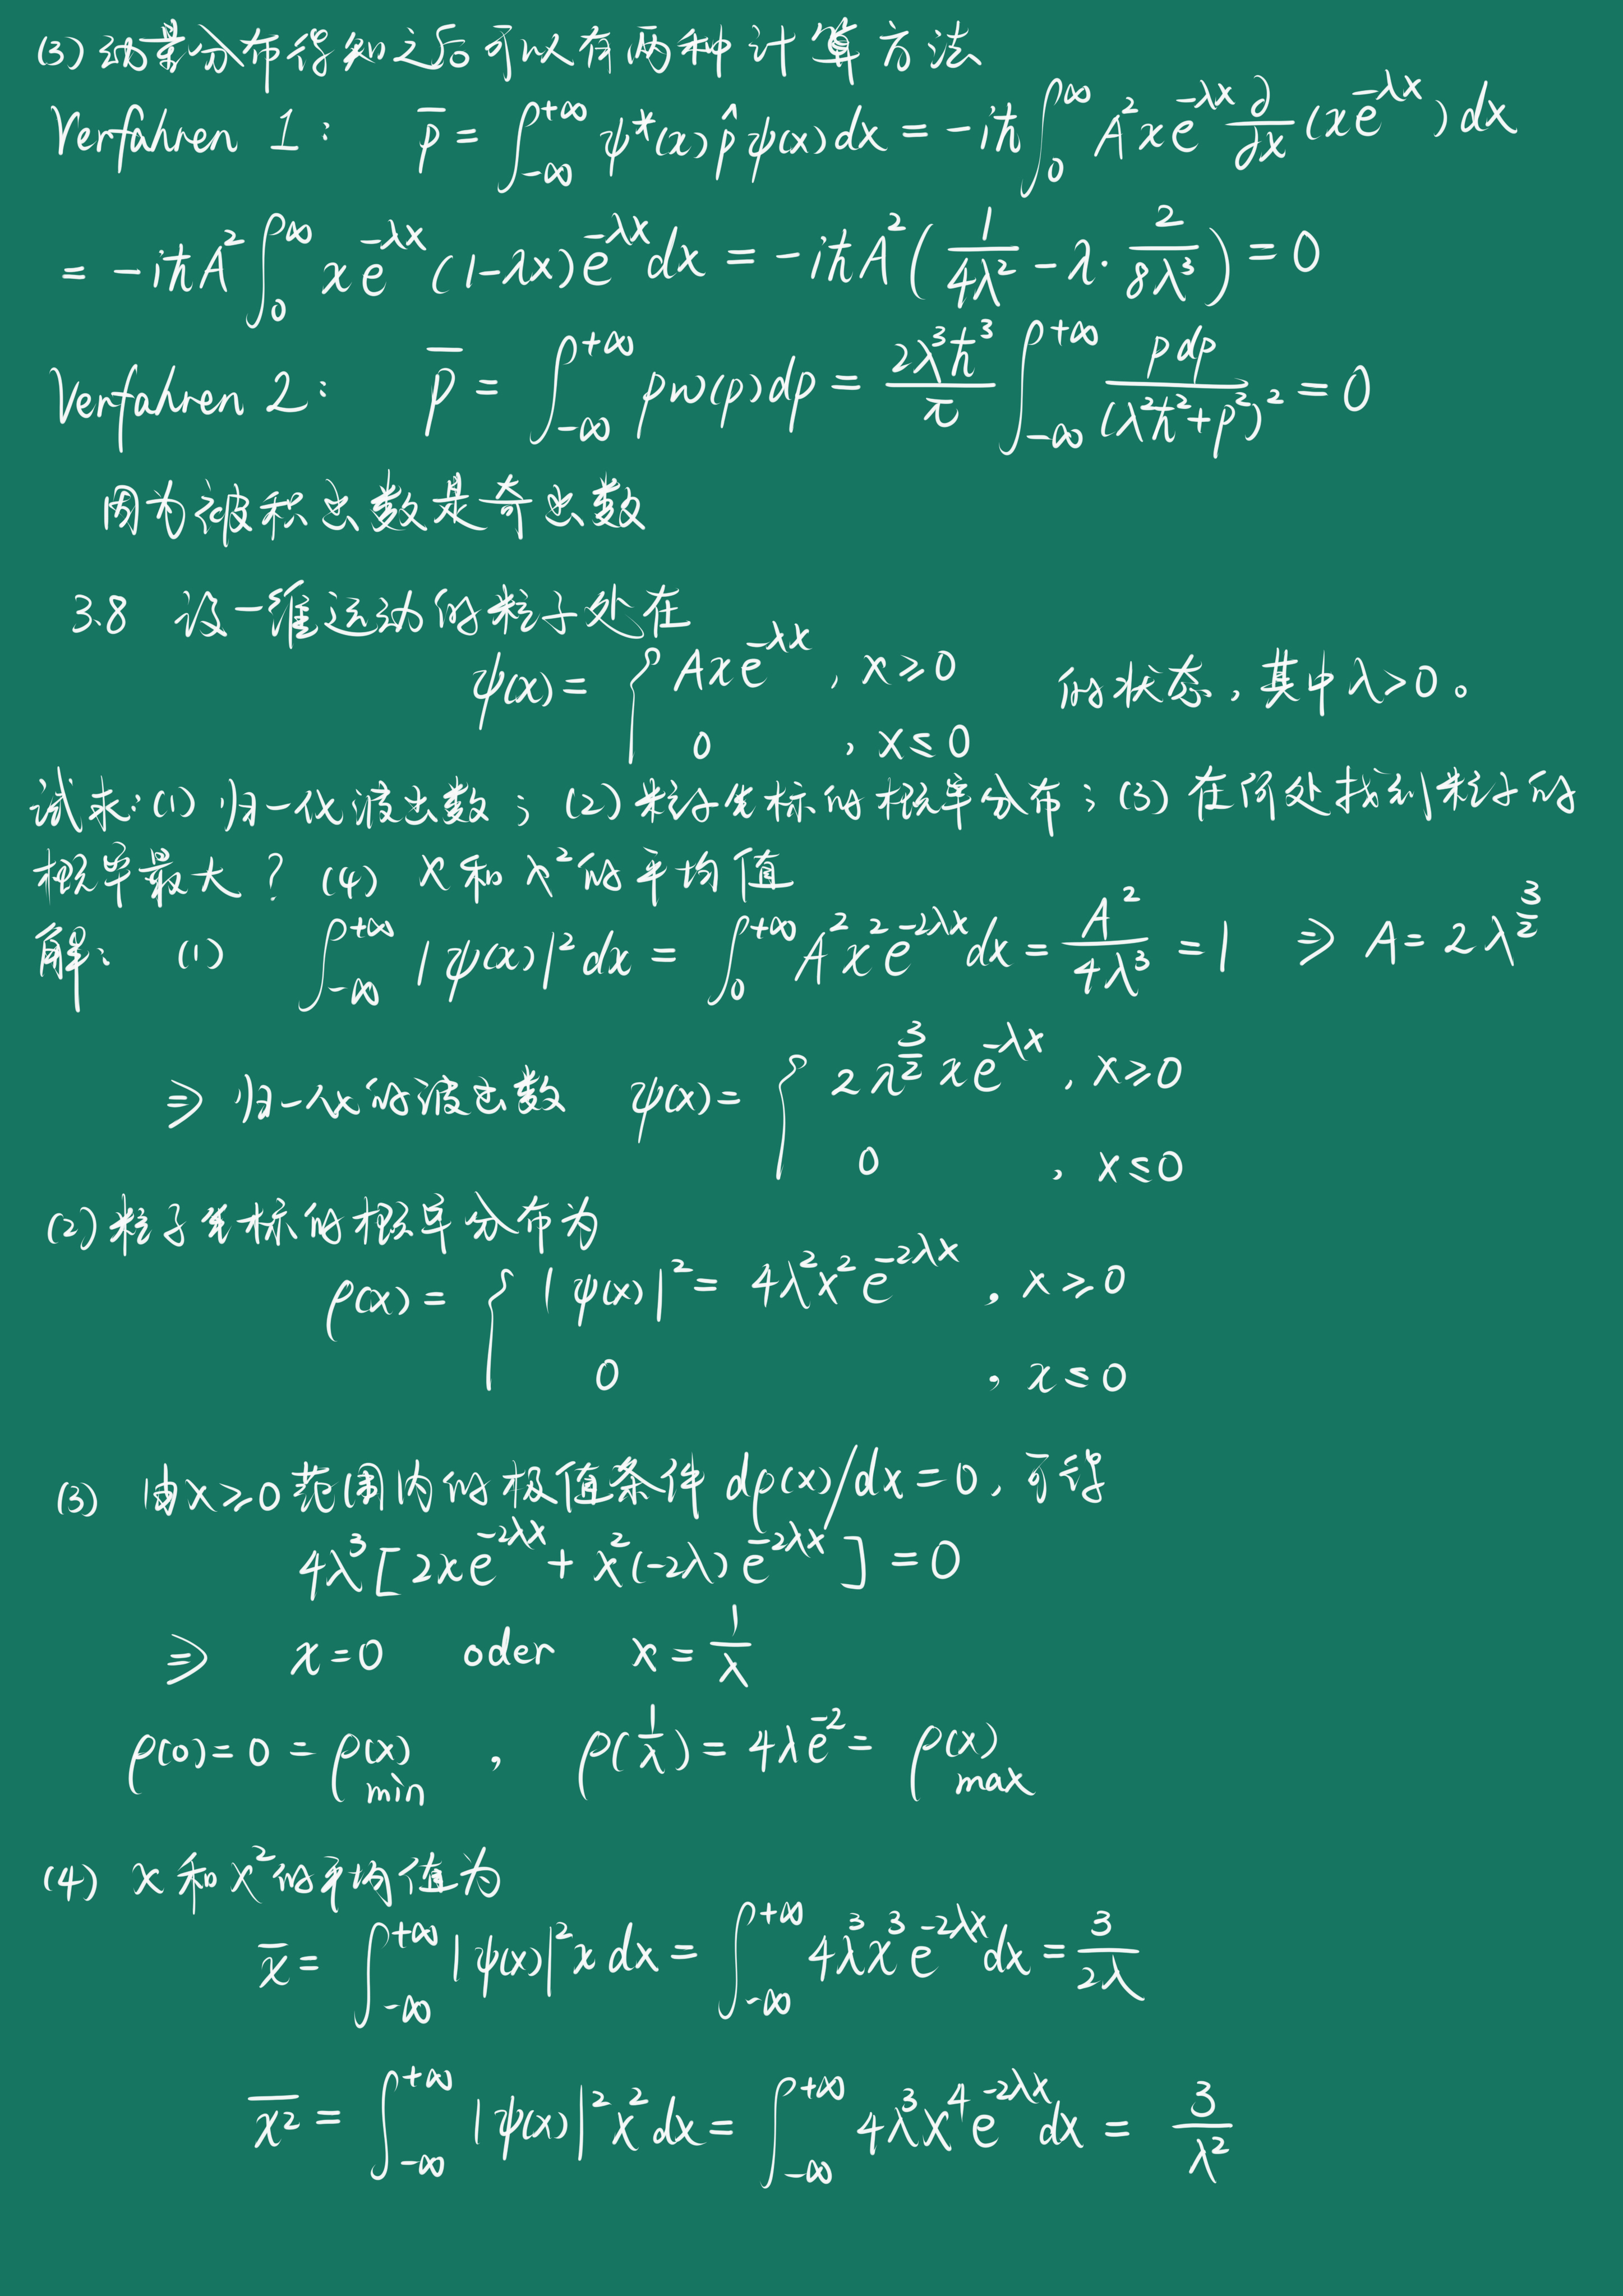 (3) 动量分布得知之后可以有两种计算方法
Verfahren 1: p̄ = ∫_{-∞}^{+∞} ψ*(x) p̂ ψ(x) dx = -iħ ∫_0^∞ A² x e^{-λx} ∂/∂x (x e^{-λx}) dx
= -iħA² ∫_0^∞ x e^{-λx} (1-λx) e^{-λx} dx = -iħA² ( 1/(4λ²) - λ· 2/(8λ³) ) = 0
Verfahren 2: p̄ = ∫_{-∞}^{+∞} p w(p) dp = (2λ³ħ³/π) ∫_{-∞}^{+∞} p dp/(λ²ħ²+p²)² = 0
因为被积函数是奇函数
3.8 设一维运动的粒子处在
ψ(x) = { A x e^{-λx}, x ≥ 0 的状态, 其中 λ>0。
0, x ≤ 0
试求: (1) 归一化波函数; (2) 粒子坐标的概率分布; (3) 在何处找到粒子的
概率最大? (4) x 和 x² 的平均值
解: (1) ∫_{-∞}^{+∞} |ψ(x)|² dx = ∫_0^{+∞} A² x² e^{-2λx} dx = A²/(4λ³) = 1 ⇒ A = 2λ^{3/2}
⇒ 归一化的波函数 ψ(x) = { 2λ^{3/2} x e^{-λx}, x ≥ 0
0, x ≤ 0
(2) 粒子坐标的概率分布为
ρ(x) = { |ψ(x)|² = 4λ²x² e^{-2λx}, x ≥ 0
0, x ≤ 0
(3) 由 x ≥ 0 范围内的极值条件 dρ(x)/dx = 0, 可得
4λ³ [ 2x e^{-2λx} + x² (-2λ) e^{-2λx} ] = 0
⇒ x = 0 oder x = 1/λ
ρ(0) = 0 = ρ(x)_{min}, ρ(1/λ) = 4λ e^{-2} = ρ(x)_{max}
(4) x 和 x² 的平均值为
x̄ = ∫_{-∞}^{+∞} |ψ(x)|² x dx = ∫_{-∞}^{+∞} 4λ³x³ e^{-2λx} dx = 3/(2λ)
\overline{x²} = ∫_{-∞}^{+∞} |ψ(x)|² x² dx = ∫_{-∞}^{+∞} 4λ³x⁴ e^{-2λx} dx = 3/λ²